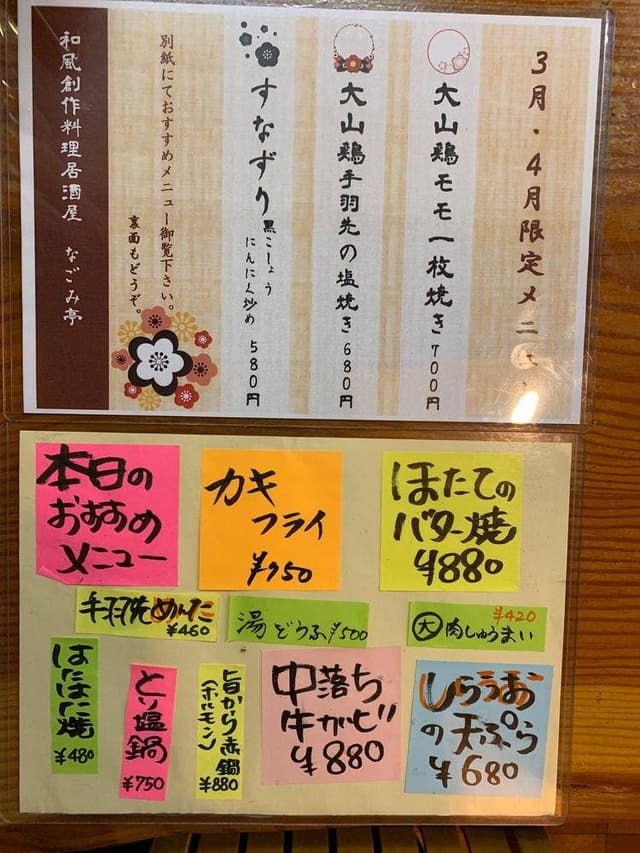 3月・4月限定メニュー
大山鶏モモ一枚焼き 700円
大山鶏手羽先の塩焼き 680円
すなずり 黒こしょう
にんにく炒め 580円
別紙にておすすめメニュー御覧下さい。
裏面もどうぞ。
和風創作料理居酒屋 なごみ亭
本日の
おすすめ
メニュー
カキ
フライ
¥750
ほたての
バター焼
¥880
手羽先めんた
¥460
湯どうふ ¥500
¥420
大 肉しゅうまい
はたはた焼
¥480
とり塩鍋
¥750
旨から赤鍋
(ホルモン)
¥880
中落ち
牛カルビ
¥880
しらうお
の天ぷら
¥680